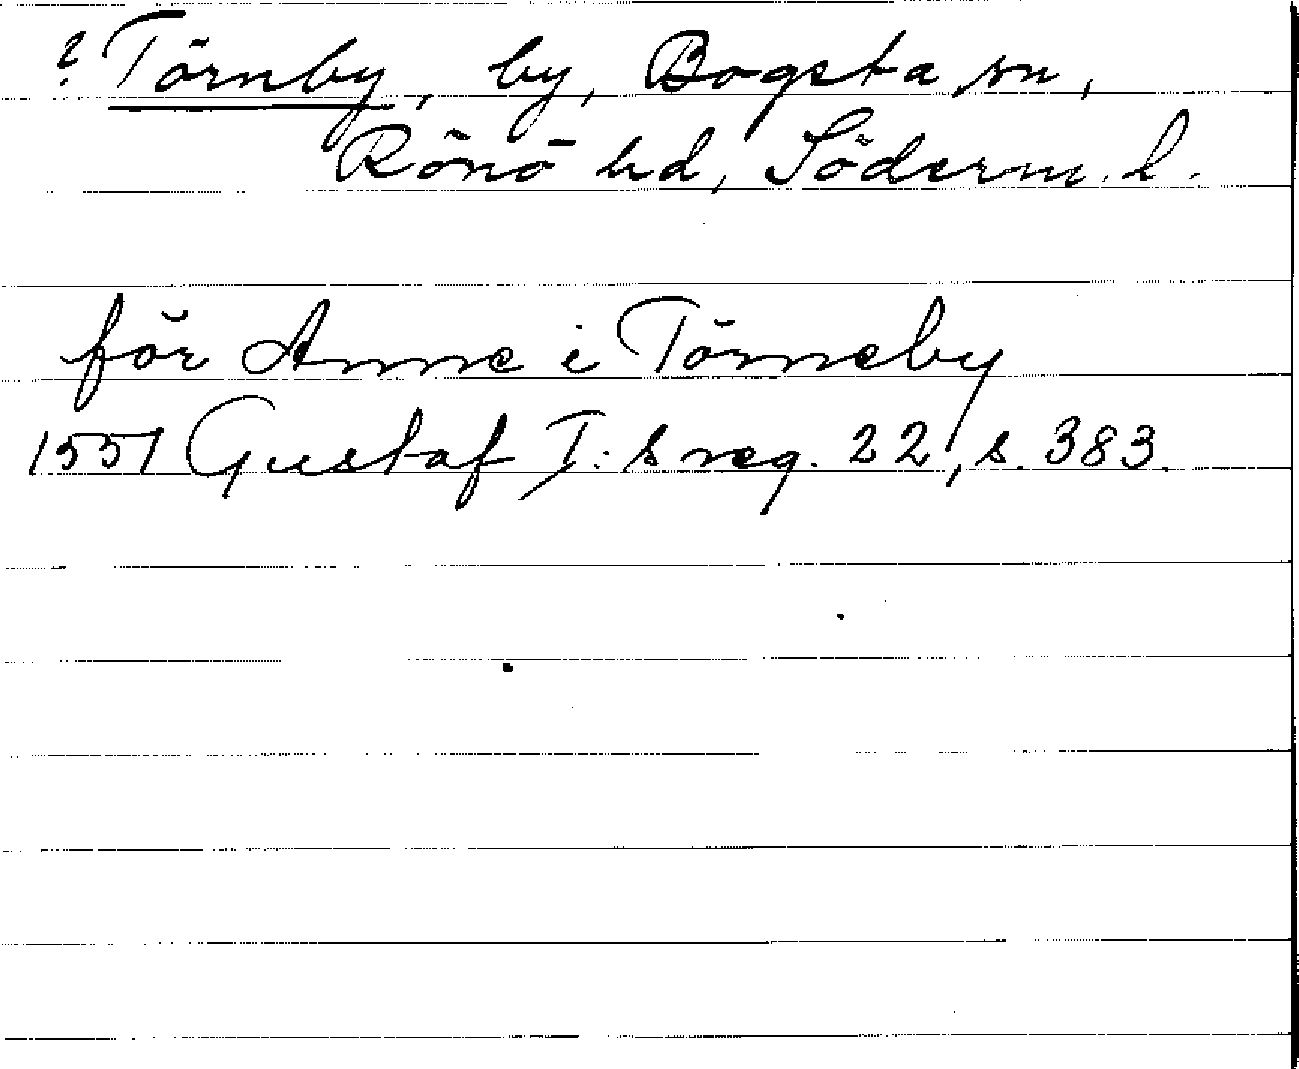 ? Törnby, by, Bogsta sn,
Rönö hd, Söderm. l.
för Anne i Törneby
1551 Gustaf I:s reg. 22, s. 383.